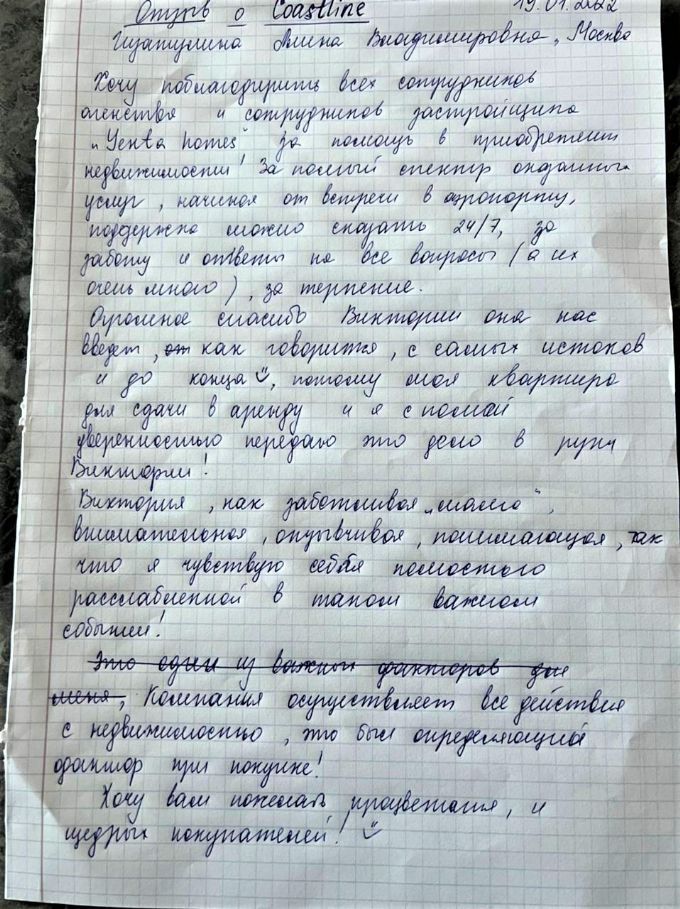 Отзыв о Coastline 19.01.2022
Алина Владимировна, Москва
Хочу поблагодарить всех сотрудников
агенства и сотрудников застройщика
„Yenta homes“ за помощь в приобретении
недвижимости! За полный спектр оказанных
услуг, начиная от встречи в аэропорту,
поддержка можно сказать 24/7, за
заботу и ответы на все вопросы (а их
очень много), за терпение.
Огромное спасибо Виктории она нас
ведет, как говорится, с самых истоков
и до конца, потому моя квартира
для сдачи в аренду и я с полной
уверенностью передаю это дело в руки
Виктории!
Виктория, как заботливая „мама“,
внимательная, отзывчивая, понимающая, так
что я чувствую себя полностью
расслабленной в таком важном
событии!
Это один из важных факторов для
меня, Компания осуществляет все действия
с недвижимостью, это был определяющий
фактор при покупке!
Хочу вам пожелать процветания, и
щедрых покупателей!